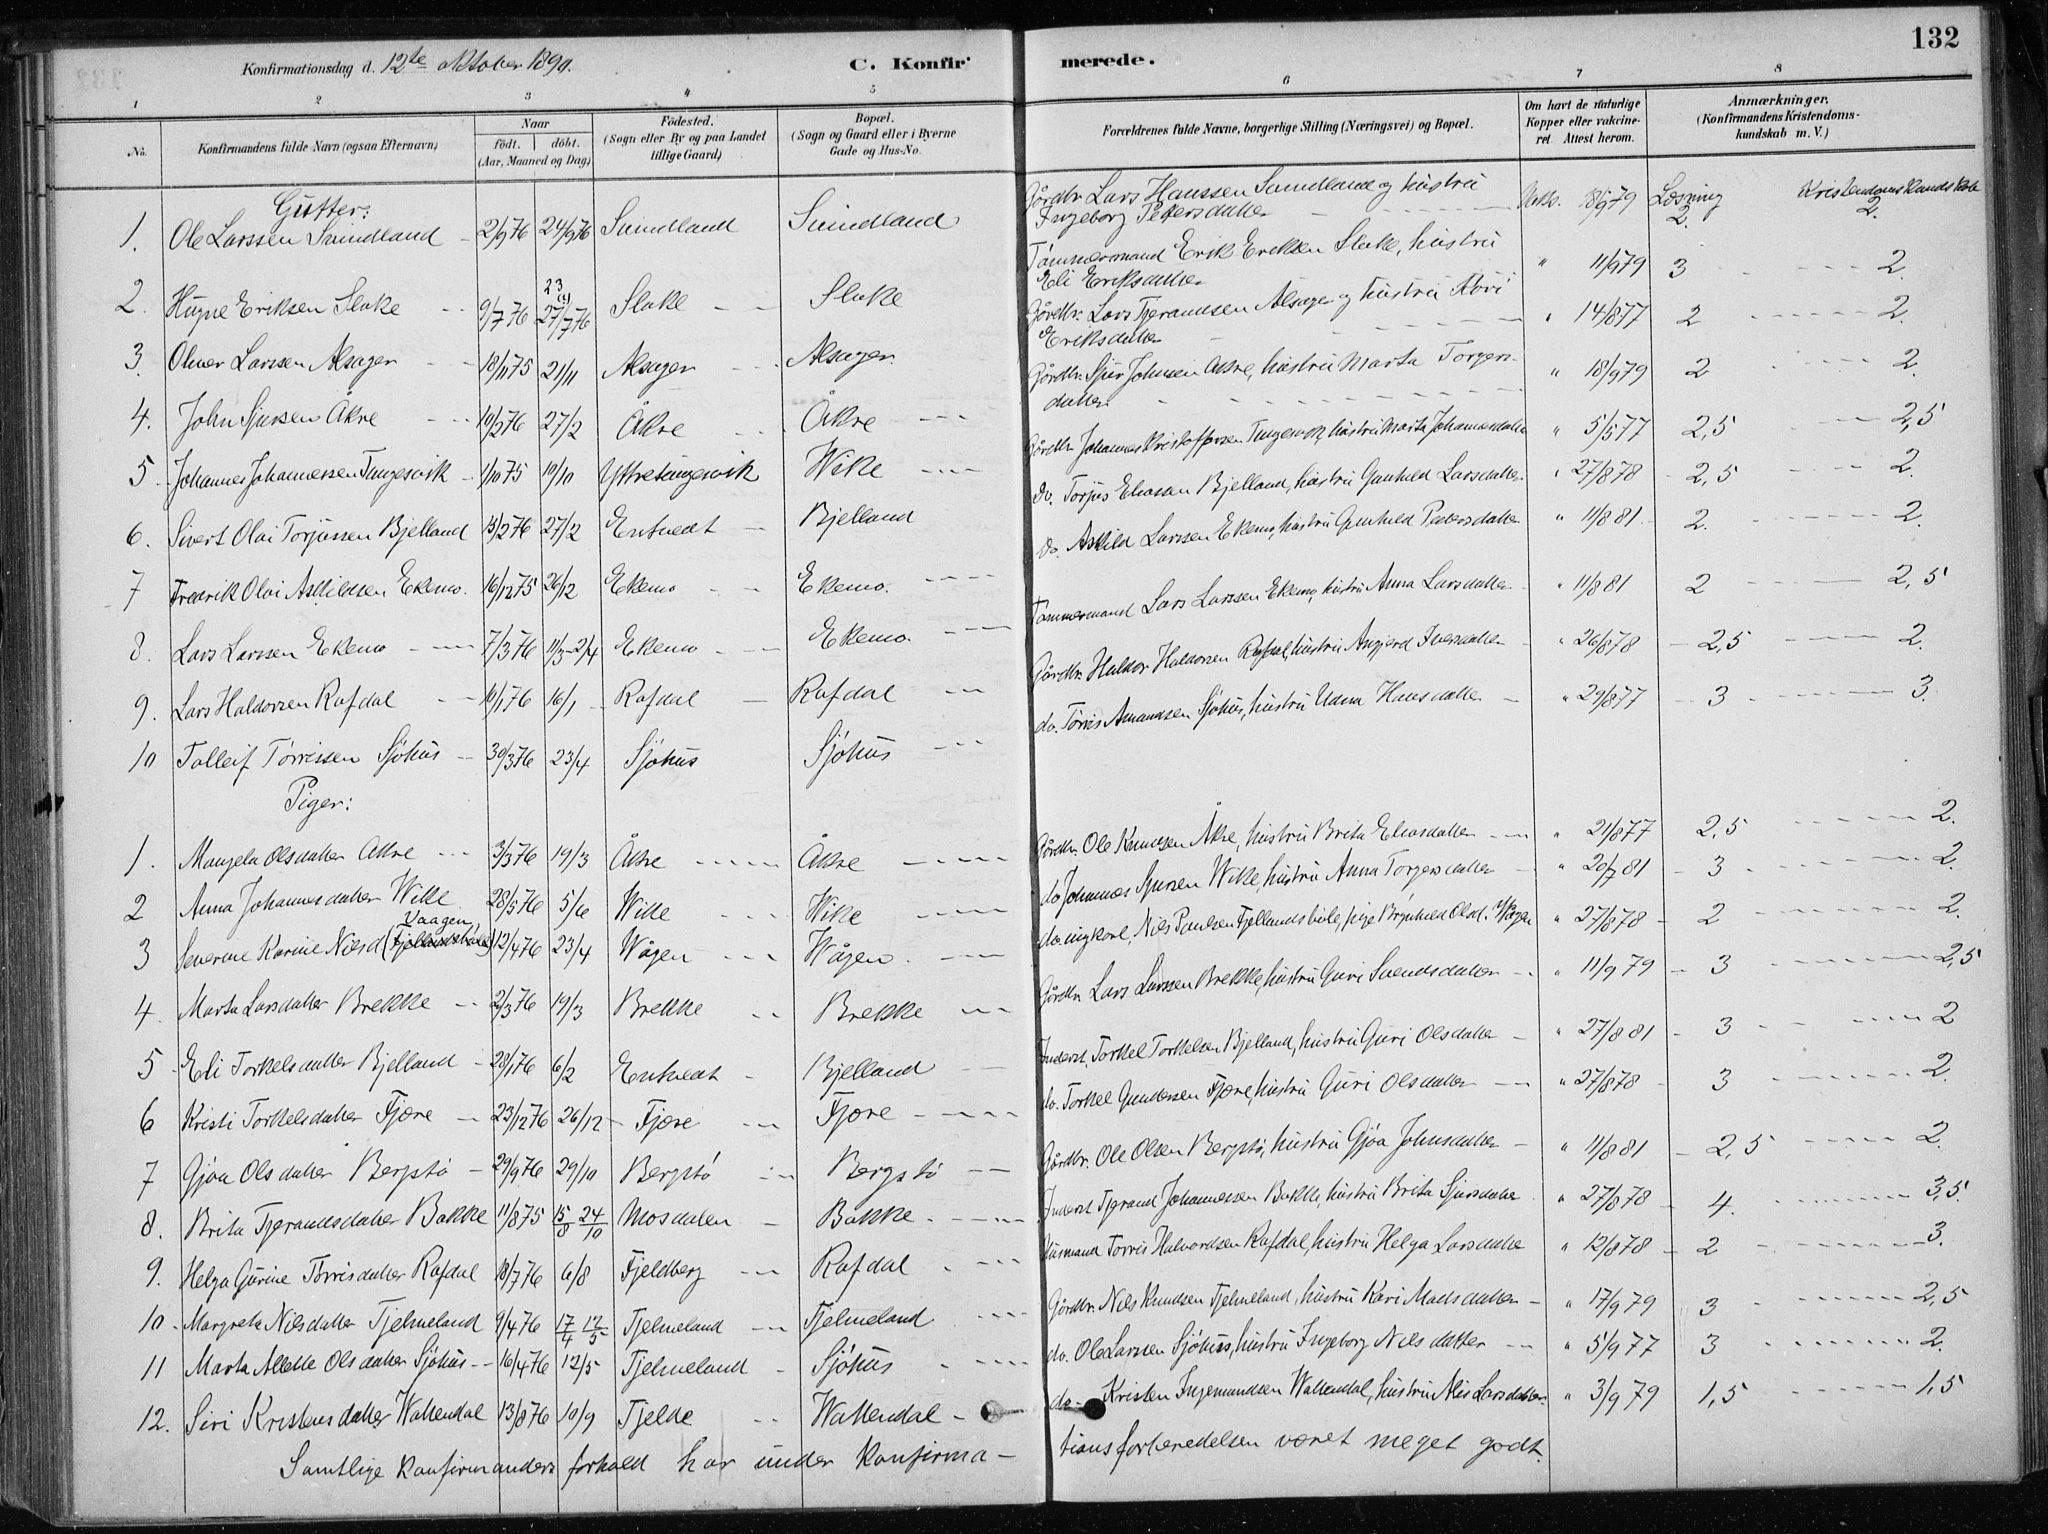 132
Konfirmationsdag d. 12te oktober 1890.
C. Konfirmerede.
1 2 3 4 5 6 7 8
No. Konfirmandens fulde Navn (ogsaa Efternavn) Naar födt. döbt. (Aar, Maaned og Dag) Födested. (Sogn eller By og paa Landet tillige Gaard) Bopæl. (Sogn og Gaard eller i Byerne Gade og Hus-No. Forældrenes fulde Navne, borgerlige Stilling (Næringsvei) og Bopæl. Om havt de naturlige Kopper eller vakcineret. Attest herom. Anmærkninger. (Konfirmandens Kristendomskundskab m. V.)
Gutter:
1. Ole Larssen Svindland 2/9 76 24/9 76 Svindland Svindland Gårdbr. Lars Hanssen Svindland og hustru Ingeborg Pedersdatter 18/9 79 Læsning 2. Kristendomskundskab 2.
2. Eriksen Slake 9/7 76 23 27/7 76 Slake Slake Tømmermand Erik Eriksen Slake, hustru Eli Eriksdatter " 11/9 79 3 2.
3. Olmer Larssen Alsager 18/11 75 21/11 Alsager Alsager Gårdbr. Lars Tjerandsen Alsager og hustru Eriksdatter " 14/8 77 2 2.
4. John Sjursen Åkre 10/2 76 27/2 Åkre Åkre Gårdbr. Sjur Johnsen Åkre, hustru Marta Torgersdatter " 18/9 79 2 2.
5. Johannes Johannessen Tungesvik 1/10 75 10/10 Ytretungesvik Wike Gårdbr. Johannes Kristoffersen Tungesvik, hustru Marta Johannesdatter " 5/5 77 2,5 2,5
6. Sivert Olai Torjussen Bjelland 13/2 76 27/2 Entvedt Bjelland do. Torjus Eliasen Bjelland, hustru Gunhild Larsdatter " 27/8 78 2,5 2.
7 Fredrik Olai Askildsen Ekemo 16/12 75 26/12 Ekemo Ekemo. do. Askild Larssen Ekemo, hustru Gunhild Pedersdatter " 11/8 81 2. 2.
8. Lars Larssen Ekemo 7/3 76 11/3-2/4 Ekemo Ekemo. Tømmermand Lars Larssen Ekemo, hustru Anna Larsdatter " 11/8 81 2 2,5
9. Lars Haldorsen Rafdal 10/1 76 16/1 Rafdal Rafdal Gårdbr. Haldor Haldorsen Rafdal, hustru Angjerd Iversdatter " 26/8 78 2,5 2.
10 Tolleif Tørrissen Sjöhus 30/3 76 23/4 Sjöhus Sjöhus do. Tørris Amundsen Sjöhus, hustru Udna Hansdatter " 29/8 77 3 3.
Piger:
1. Mangela Olsdatter Åkre 3/3 76 19/3 Åkre Åkre Gårdbr. Ole Knudsen Åkre, hustru Brita Eliasdatter " 21/8 77 2,5 2.
2 Anna Johannesdatter Wike 28/5 76 5/6 Wike Wike do Johannes Sjursen Wike, hustru Anna Torgersdatter " 20/7 81 3 2.
3 Severine Karine Nilsd (Fjellandsbøle) Vaagen 12/4 76 23/4 Wågen Wågen do. ungkarl, Nils Paulsen Fjellandsbøle, pige Brynhild Olsd. " 27/8 78 2 2.
4. Marta Larsdatter Brekke 2/3 76 19/3 Brekke Brekke Gårdbr. Lars Larssen Brekke, hustru Guri Svendsdatter " 11/9 79 3 2,5
5 Eli Torkelsdatter Bjelland 28/1 76 6/2 Entvedt Bjelland Inderst. Torkel Torkelsen Bjelland, hustru Guri Olsdatter " 27/8 81 3 2
6 Kristi Torkelsdatter Fjære 23/12 76 26/12 Fjære Fjære do. Torkel Gundersen Fjære, hustru Guri Olsdatter " 27/8 78 3 2.
7 Gjøa Olsdatter Bergstö 29/9 76 29/10 Bergstö Bergstö Gårdbr. Ole Olsen Bergstö, hustru Gjøa Johnsdatter " 11/8 81 2,5 2.
8. Brita Tjerandsdatter Bakke 11/8 75 15/8 24/10 Mosdalen Bakke Inderst Tjerand Johannessen Bakke, hustru Brita Sjursdatter " 27/8 78 4. 3,5.
9. Helga Gurine Tørrisdatter Rafdal 18/7 76 6/8 Fjeldberg Rafdal Husmand Tørris Halvordsen Rafdal, hustru Helga Larsdatter " 12/8 78 2 3.
10 Margreta Nilsdatter Fjelmeland 9/4 76 17/4 12/5 Fjelmeland Fjelmeland Gårdbr. Nils Knudsen Fjelmeland, hustru Kari Madsdatter " 17/9 79 3 2,5
11 Marta Alette Olsdatter Sjöhus 16/4 76 12/5 Fjelmeland Sjöhus do. Ole Larssen Sjöhus, hustru Ingeborg Nilsdatter " 5/9 77 3 2.
12. Siri Kristensdatter Wattendal 13/8 76 10/9 Fjelde Wattendal do. Kristen Ingemundsen Wattendal, hustru Alis Larsdatter " 3/9 79 1,5 1,5
Samtlige Konfirmanders forhold har under Konfirmationsforberedelsen været meget godt.